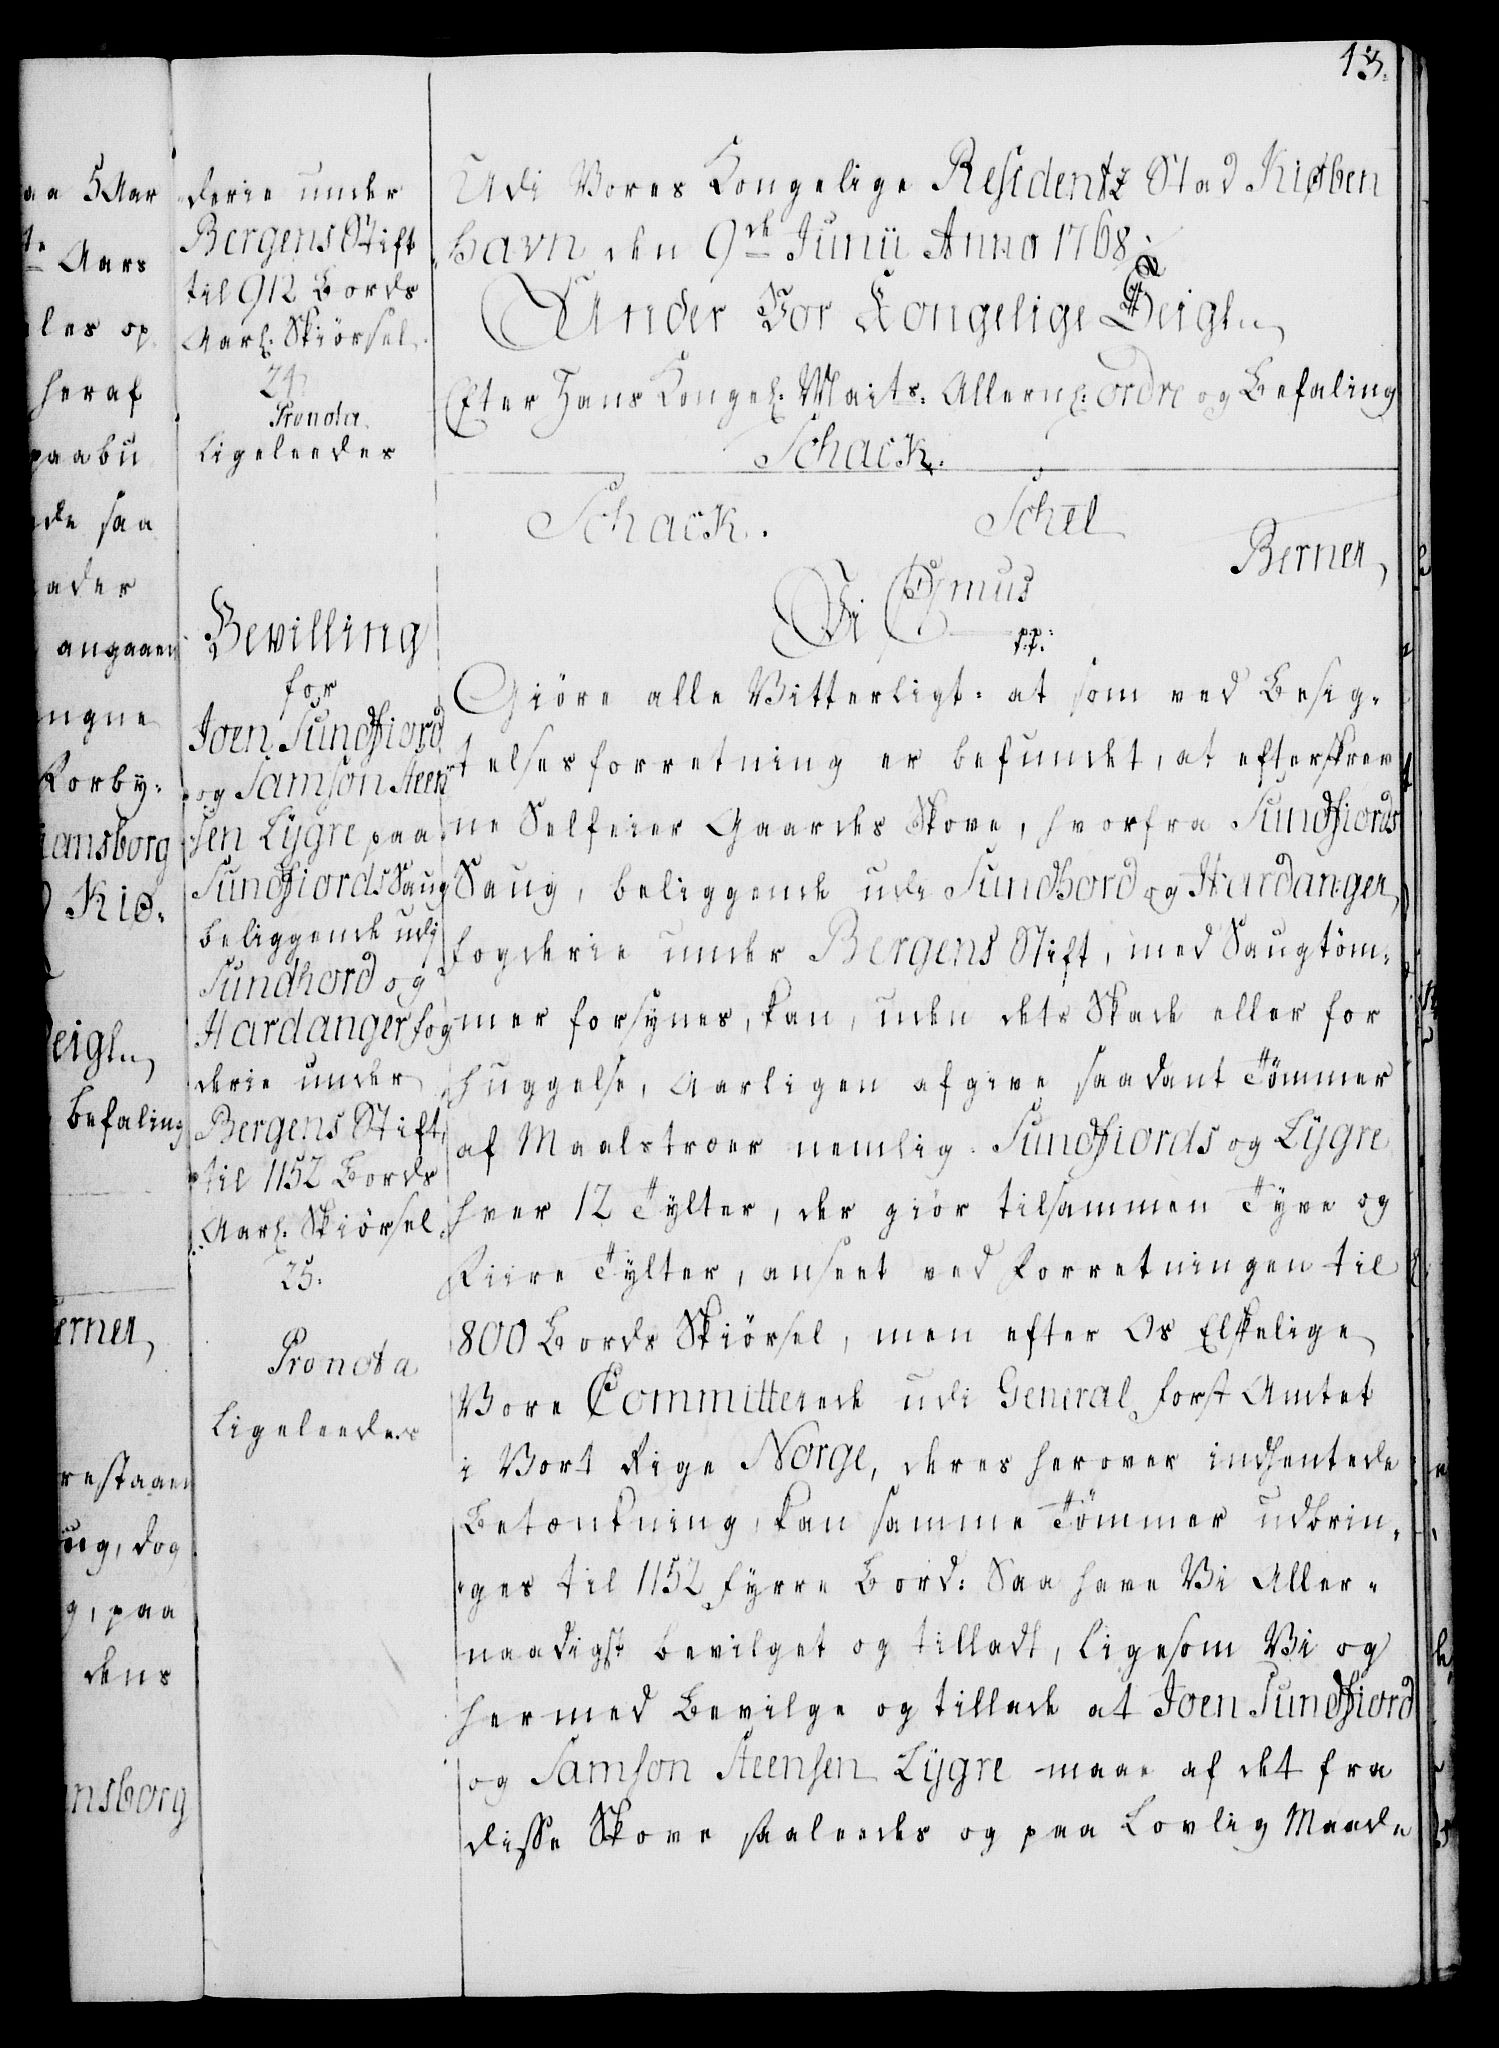 13.
derie under
Bergens Stift
til 912 Bords
Aarl: Skiörsel.
24
Pronota.
Ligeleedes
Bevilling
for
Joen Sundfiord
og Samson Steen
sen Lÿgre paa
Sundfiords Saug
beliggende udi
Sundhord og
Hardanger fog
derie under
Bergens Stift,
til 1152 Bords
Aarl: Skiörsel.
25.
Pronota
Ligeleedes
Udi Vores Kongelige Residentz Stad Kiøben
havn den 9de Junii Anno 1768.
Under Vor Kongelige Seigl
Efter Hans Kongel: Maits: Allern: ordre og Befaling
Schack.
Schack. Schel
Berner
Vi Chmus
pp:
Giöre alle Vitterligt: at som ved Besig-
telsesforretning er befundet, at efterskrev
ne Selfeier Gaardes Skove, hvorfra Sundfiords
Saug, beliggende udi Sundhord og Hardanger
fogderie under Bergens Stift, med Saugtöm-
mer forsynes, kan, uden dets Skade eller for
huggelse, Aarligen afgive saadant Tömmer
af Maalstroer nemlig. Sundfiords og Lÿgre
hver 12 Tylter, der giör tilsammen Tyve og
Fiire Tylter, anseet ved Forretningen til
800 Bords Skiörsel, men efter Os Elskelige
Vore Committerede udi General forst Amtet
i Vort Rige Norge, deres herover indhentede
Betænkning, kan samme Tömmer udbrin-
ges til 1152 fyrre Bord: Saa have Vi Aller-
naadigst bevilget og tilladt, ligesom Vi og
hermed Bevilge og tillade at Joen Sundfiord
og Samson Steensen Lÿgre maae af det fra
disse Skove saaleedes og paa Lovlig Maade